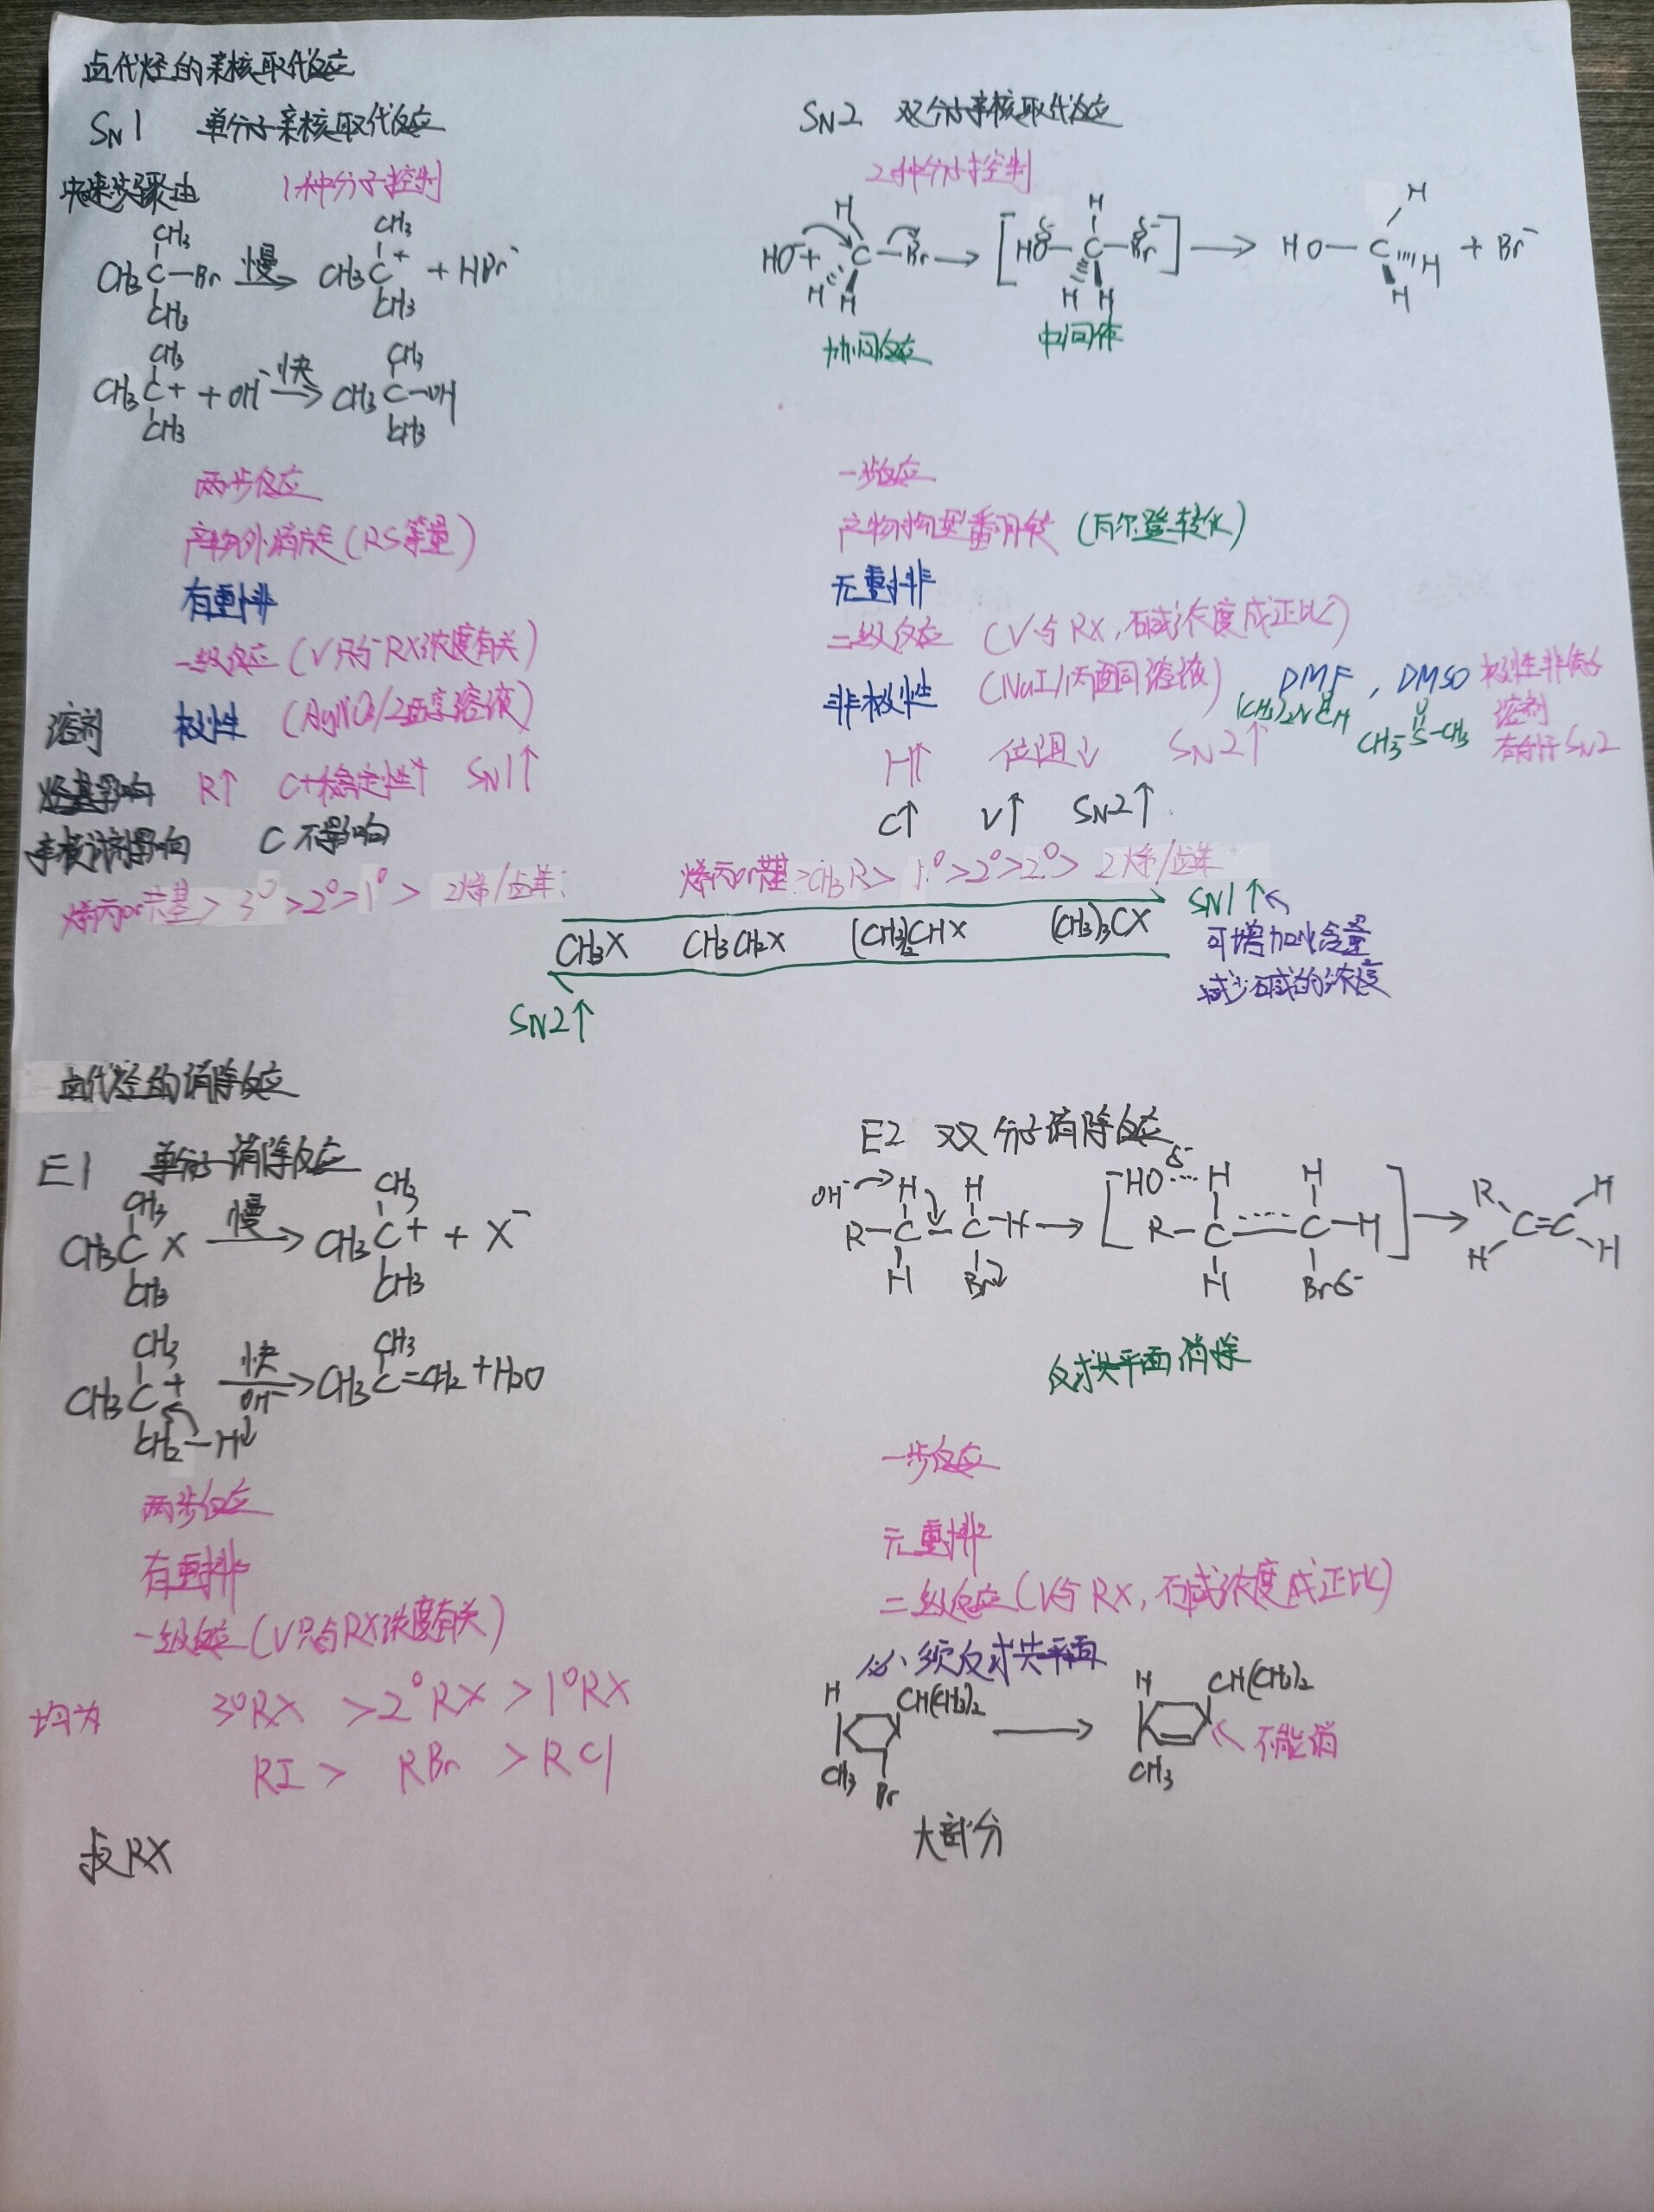 卤代烃的亲核取代反应
SN1 单分子亲核取代反应
决速步骤由 1种分子控制
CH3
CH3C—Br 慢→ CH3C+ + HBr-
CH3
CH3
CH3
CH3C+ + OH- 快→ CH3C—OH
CH3
CH3
两步反应
产物外消旋（RS等量）
有重排
一级反应（V只与RX浓度有关）
溶剂 极性 （AgNO3/乙醇溶液）
烃基影响 R↑ C+稳定性↑ SN1↑
亲核试剂影响 C不影响
烯丙or苄基＞3°＞2°＞1°＞乙烯/卤苯
SN2 双分子亲核取代反应
2种分子控制
HO-+ H C—Br → [HOδ-—C—Brδ-] → HO—C H + Br-
H H
协同反应 中间体
一步反应
产物构型翻转（瓦尔登转化）
无重排
二级反应（V与RX,碱浓度成正比）
非极性 （NaI/丙酮溶液） DMF，DMSO 极性非质子
(CH3)2NCH O CH3-S-CH3 溶剂
有利于SN2
H↑ 位阻↓ SN2↑
C↑ V↑ SN2↑
烯丙or苄基＞CH3R＞1°＞2°＞2°＞乙烯/卤苯
CH3X CH3CH2X (CH3)2CHX (CH3)3CX
SN1↑
可增加水含量
减少碱的浓度
SN2↑
卤代烃的消除反应
E1 单分子消除反应
CH3
CH3C X 慢→ CH3C+ + X-
CH3
CH3
CH3
CH3C+ 快→ OH- CH3C=CH2+H2O
CH2—H
两步反应
有重排
一级反应（V只与RX浓度有关）
均为 3°RX ＞2°RX ＞1°RX
RI ＞ RBr ＞RCl
E2 双分子消除反应
OH- H H
R—C—C—H → [-HOδ-…H H R—C…C—H H Brδ-] → R H C=C H H
H Br
反式共平面消除
一步反应
无重排
二级反应（V与RX,碱浓度成正比）
必须反式共平面
H CH(CH3)2 → H CH(CH3)2
CH3 Br CH3 不能消
大部分
RX